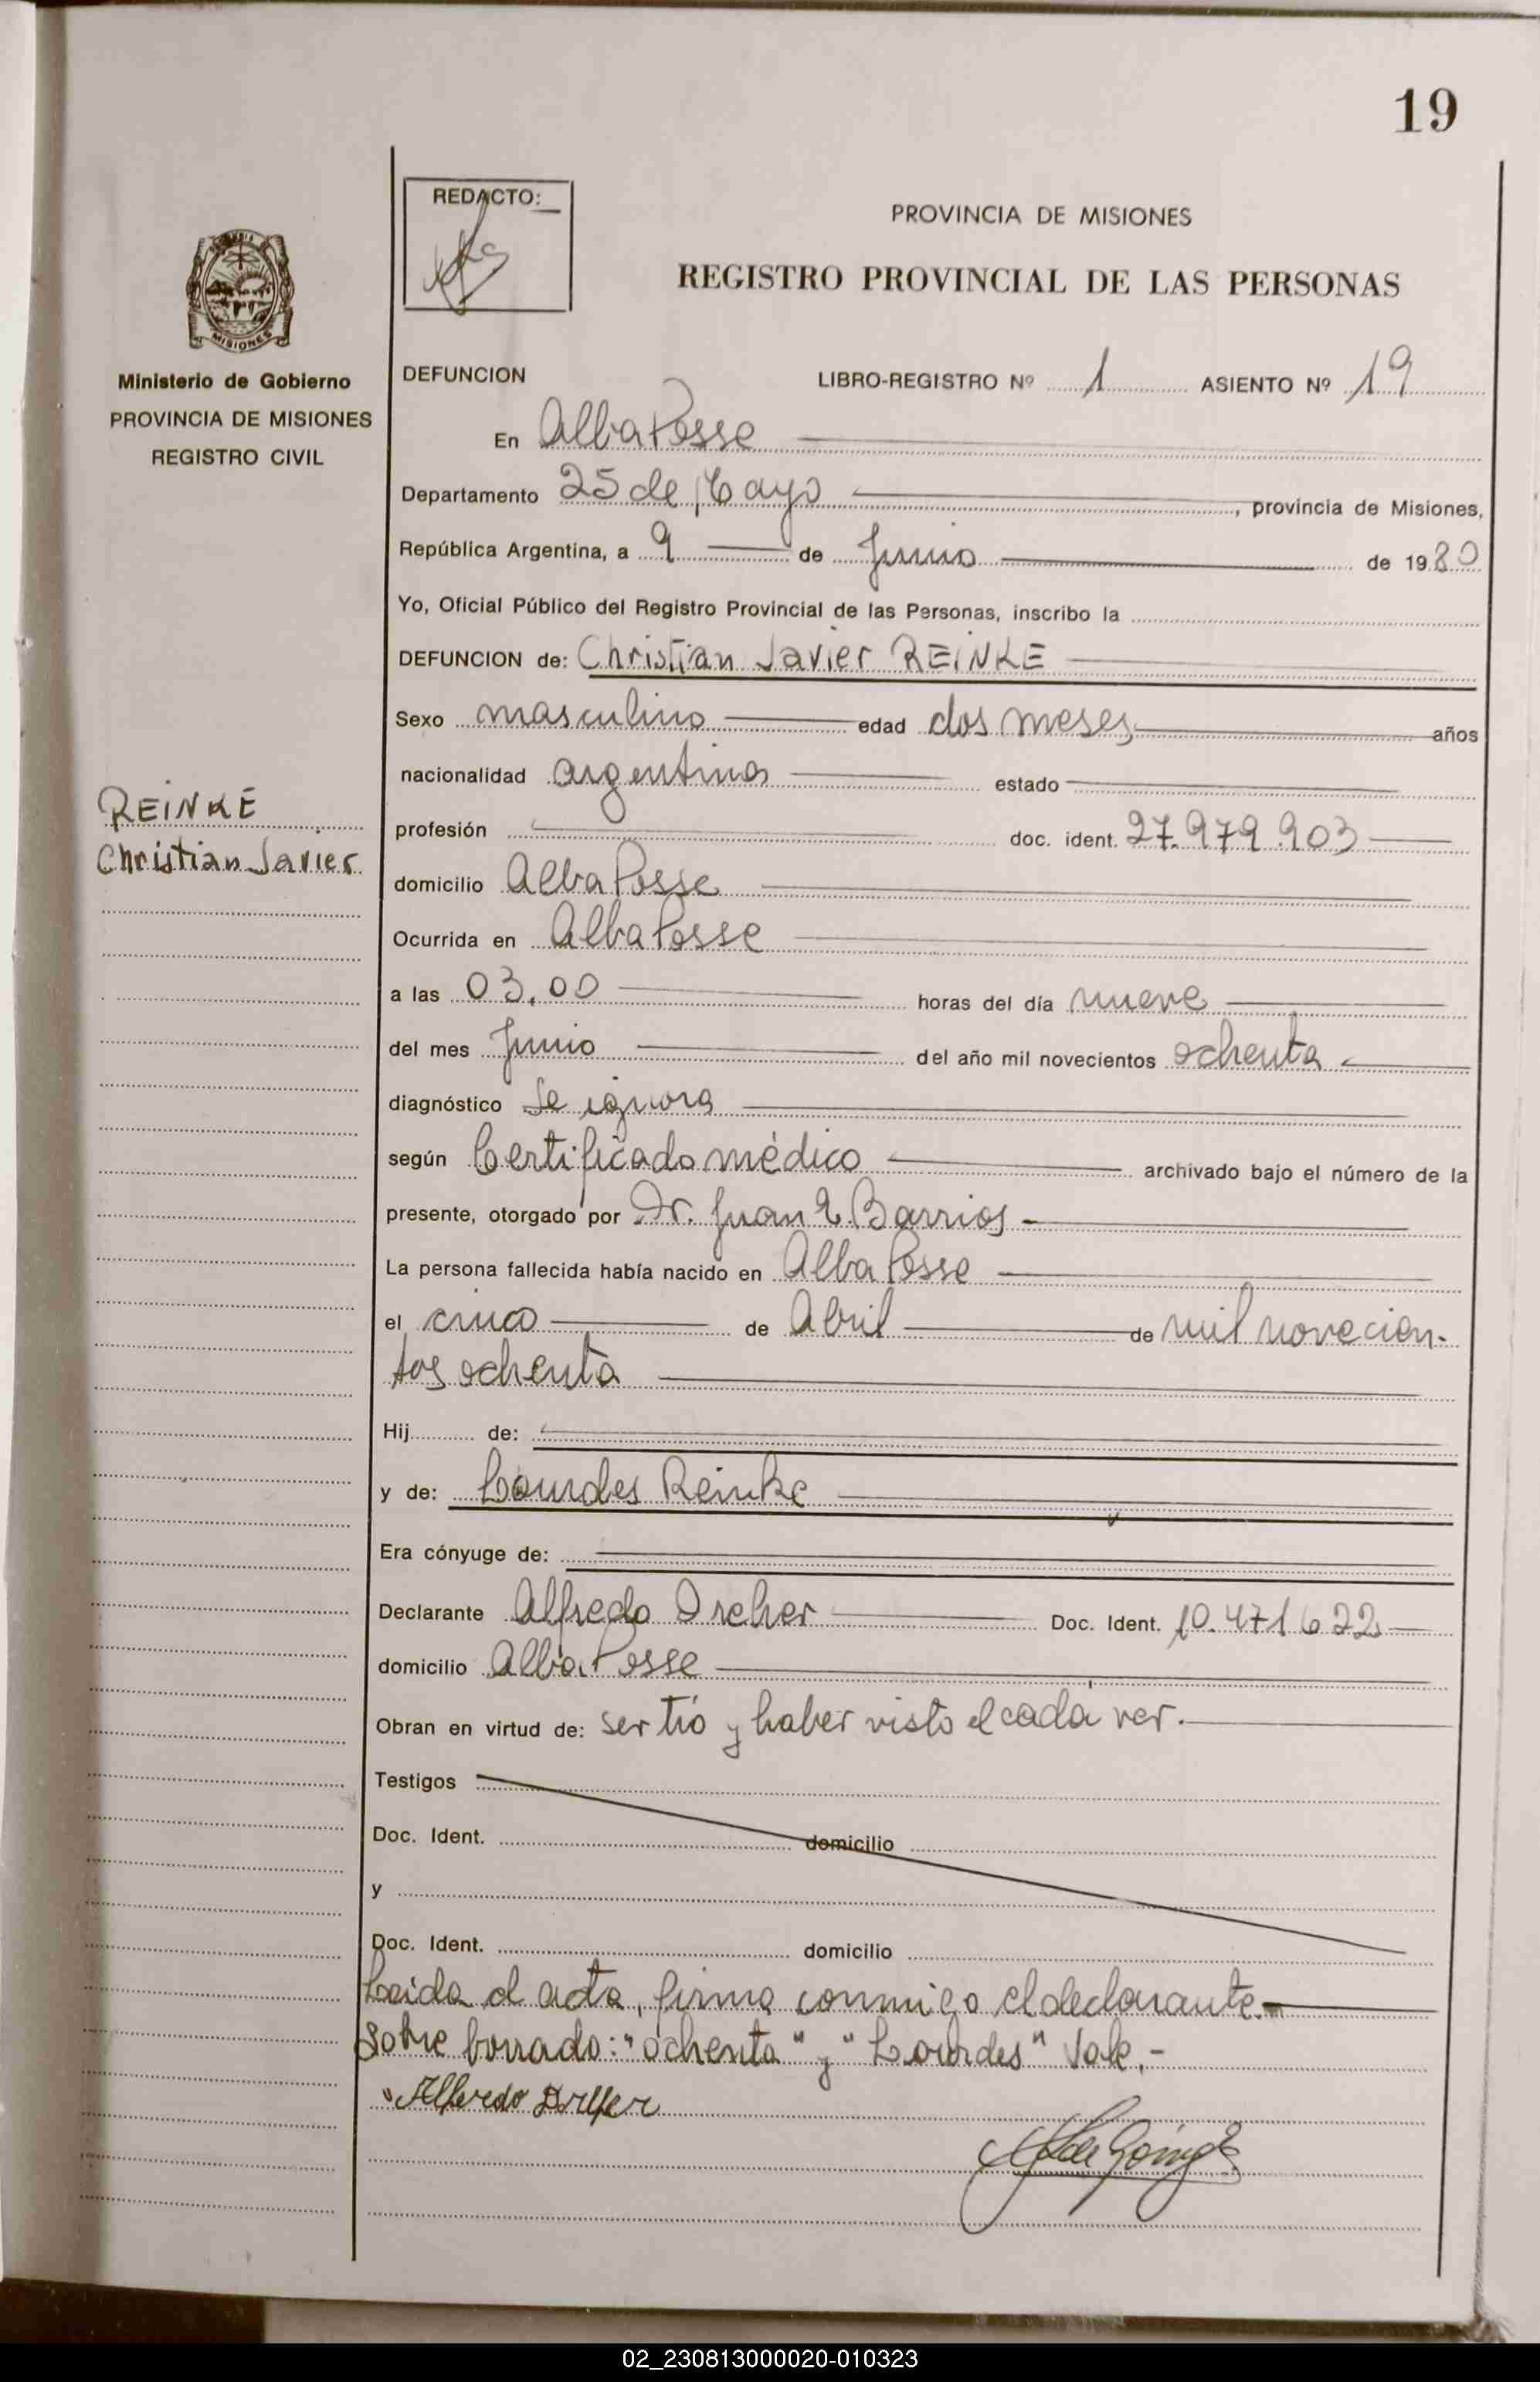 19
REDACTO:
PROVINCIA DE MISIONES
REGISTRO PROVINCIAL DE LAS PERSONAS
MISIONES
Ministerio de Gobierno
PROVINCIA DE MISIONES
REGISTRO CIVIL
DEFUNCION LIBRO-REGISTRO Nº 1 ASIENTO Nº 19
En Alba Posse
Departamento 25 de Mayo, provincia de Misiones,
República Argentina, a 9 de Junio de 1980
Yo, Oficial Público del Registro Provincial de las Personas, inscribo la
DEFUNCION de: Christian Javier REINKE
Sexo masculino edad dos meses años
nacionalidad argentina estado
REINKE
Christian Javier
profesión doc. ident. 27.979.903
domicilio Alba Posse
Ocurrida en Alba Posse
a las 03.00 horas del día nueve
del mes Junio del año mil novecientos ochenta
diagnóstico Se ignora
según Certificado médico archivado bajo el número de la
presente, otorgado por Dr. Juan E. Barrios -
La persona fallecida había nacido en Alba Posse
el cinco de Abril de mil novecien-
tos ochenta
Hij de:
y de: Lourdes Reinke
Era cónyuge de:
Declarante Alfredo Dreher Doc. Ident. 10.471622
domicilio Alba Posse
Obran en virtud de: ser tío y haber visto el cadáver.
Testigos
Doc. Ident. domicilio
y
Doc. Ident. domicilio
Leida el acta, firma conmigo el declarante.-
Sobre borrado: "ochenta" y "Lourdes" Vale.-
Alfredo
02_230813000020-010323